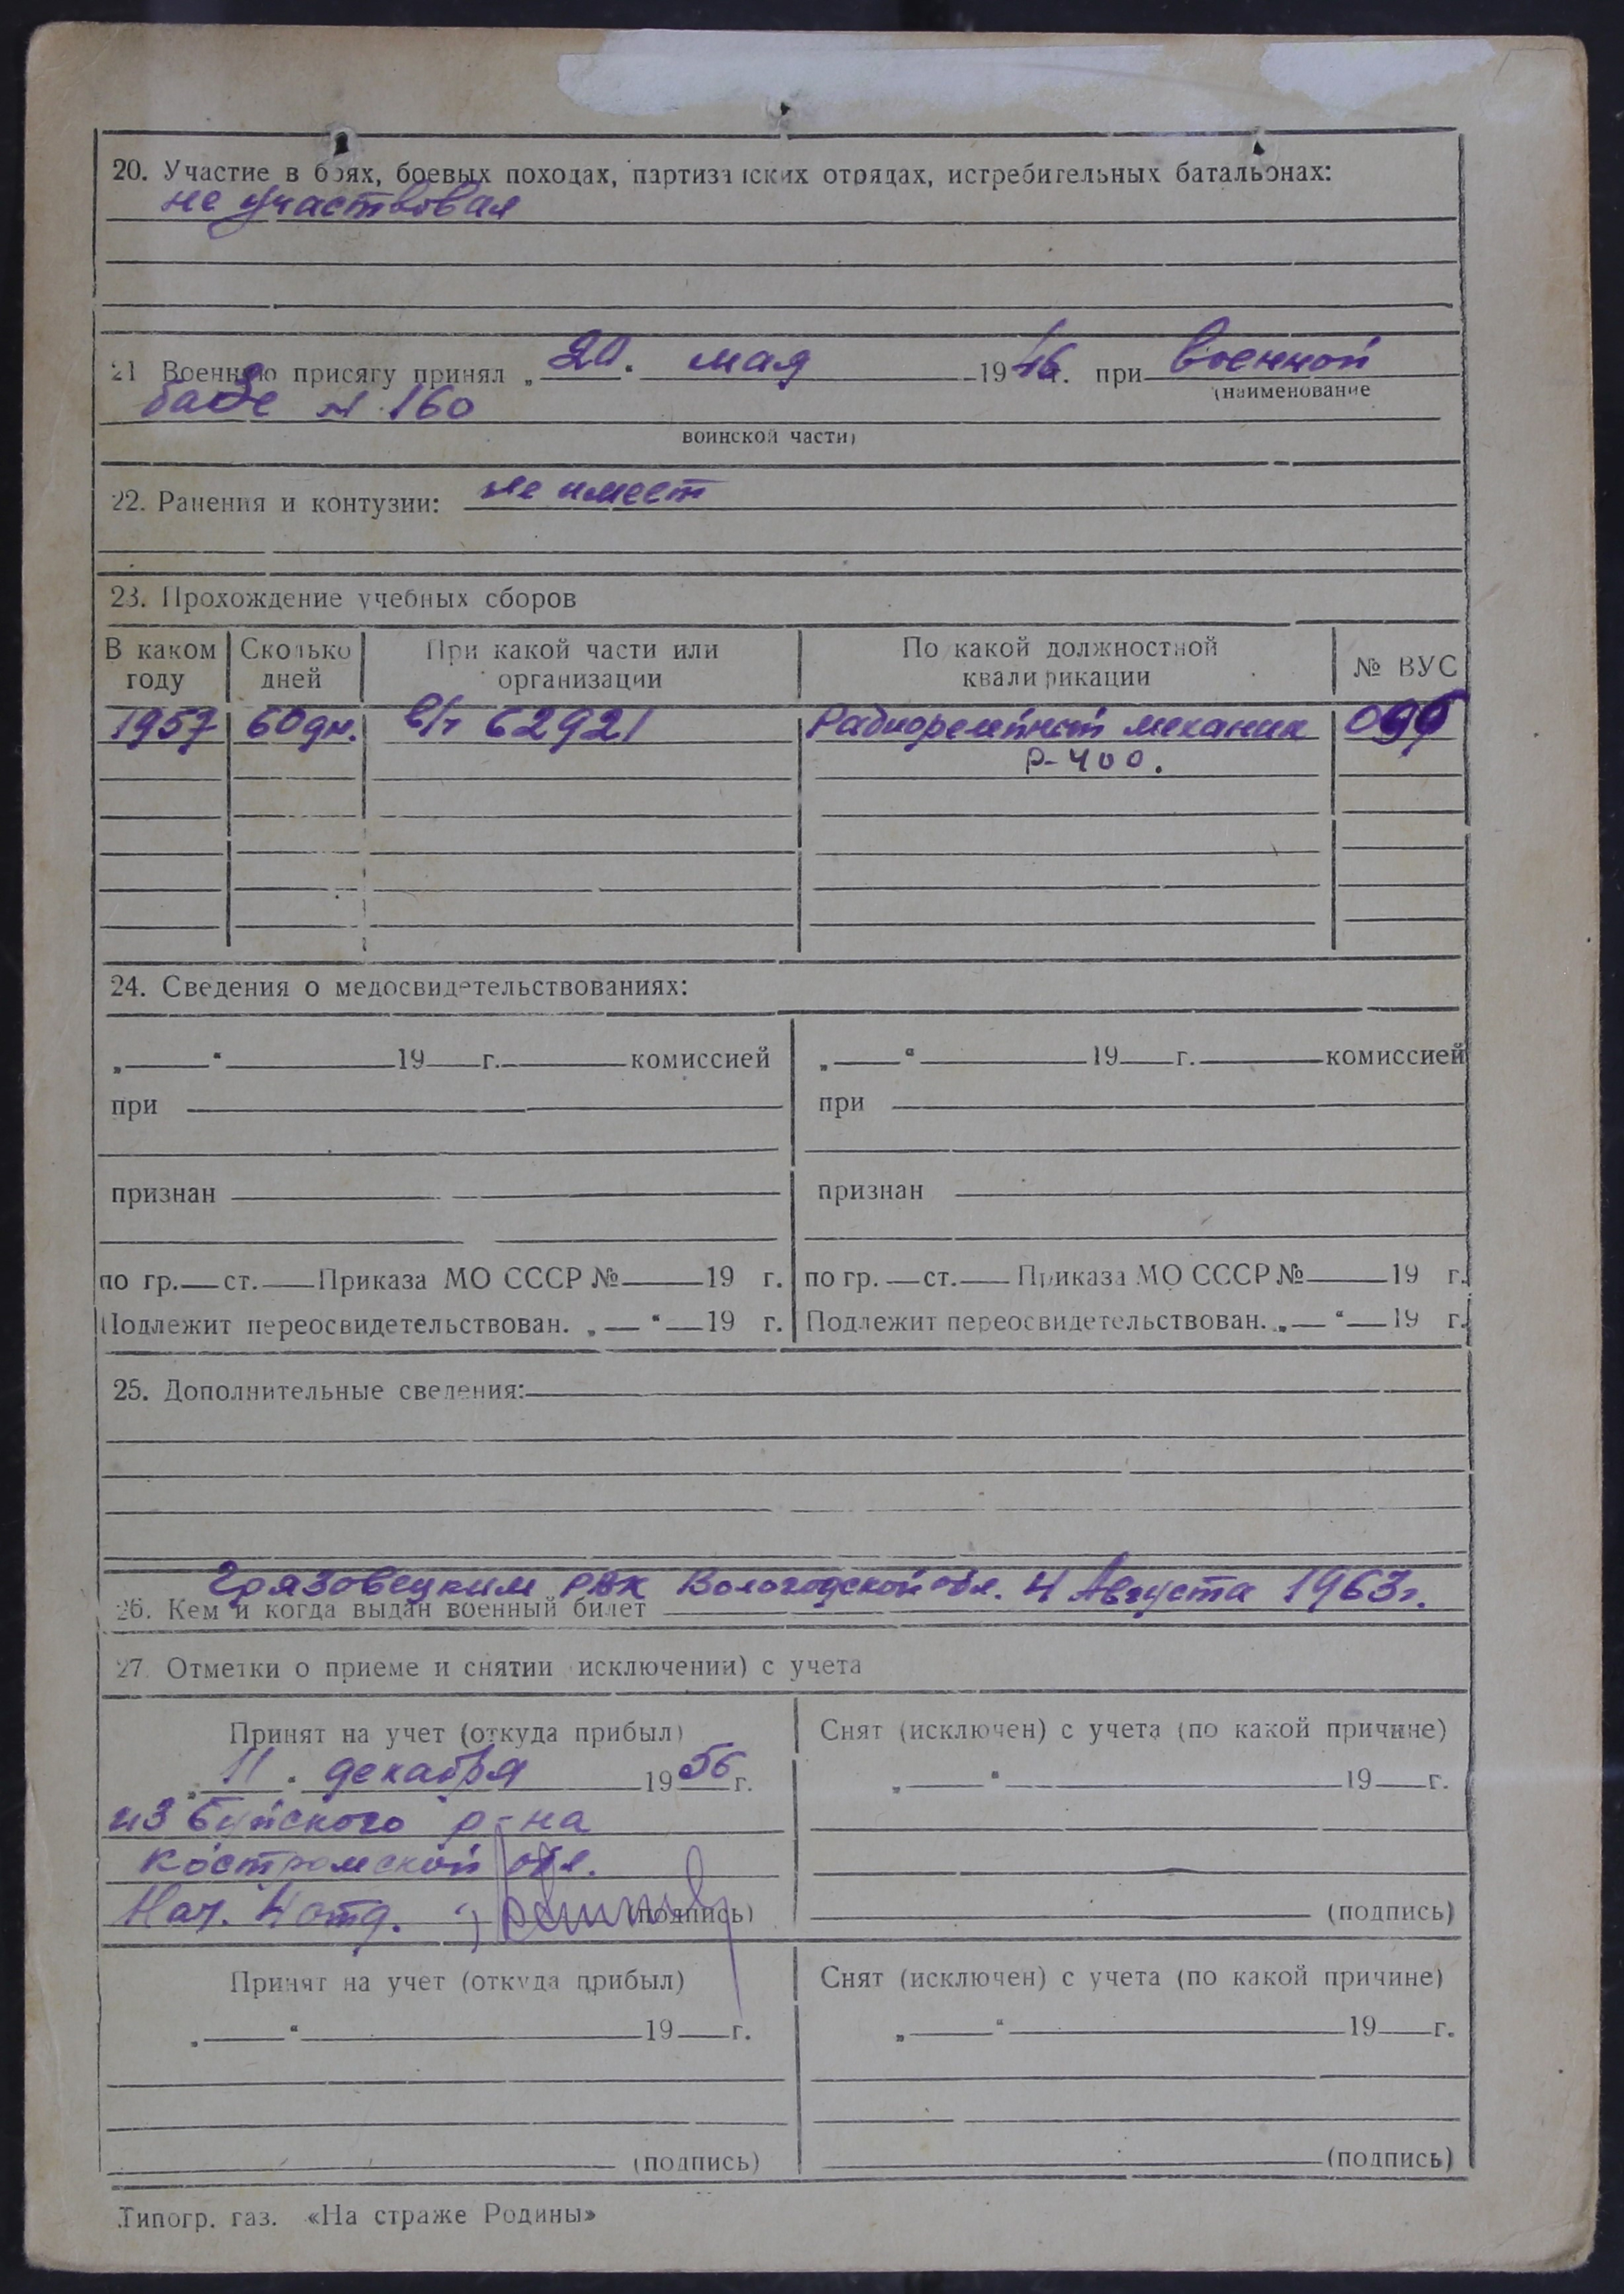 20. Участие в боях, боевых походах, партизанских отрядах, истребительных батальонах:
не участвовал
21 Военную присягу принял „20" мая 1946 г. при военной
(наименование
базе № 160
воинской части)
22. Ранения и контузии: не имеет
23. Прохождение учебных сборов
В каком году Сколько дней При какой части или организации По какой должностной квалификации № ВУС
1957 60 дн. в/ч 62921 Радиорелейный механик
Р-400.
24. Сведения о медосвидетельствованиях:
„ “ 19 г. комиссией „ “ 19 г. комиссией
при при
признан признан
по гр. ст. Приказа МО СССР № 19 г. по гр. ст. Приказа МО СССР № 19 г.
Подлежит переосвидетельствован. „ “ 19 г. Подлежит переосвидетельствован. „ “ 19 г.
25. Дополнительные сведения:
Грязовецким РВК Вологодской обл. 4 Августа 1963 г.
26. Кем и когда выдан военный билет
27. Отметки о приеме и снятии исключении) с учета
Принят на учет (откуда прибыл) Снят (исключен) с учета (по какой причине)
„11" декабря 1956 г. „ “ 19 г.
из Буйского р-на
Костромской обл.
Нач. 4 отд. (подпись) (подпись)
Принят на учет (откуда прибыл) Снят (исключен) с учета (по какой причине)
„ “ 19 г. „ “ 19 г.
(подпись) (подпись)
Типогр. газ. «На страже Родины»